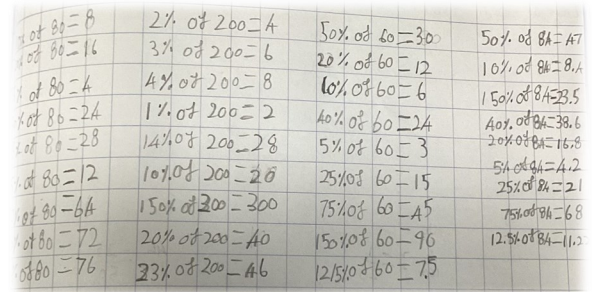 % of 80=8
% of 80=16
% of 80=4
% of 80=24
% of 80=28
% of 80=12
% of 80=64
% of 80=72
of 80=76
2% of 200=4
3% of 200=6
4% of 200=8
1% of 200=2
14% of 200=28
10% of 200=20
150% of 200=300
20% of 200=40
23% of 200=46
50% of 60=30
20% of 60=12
10% of 60=6
40% of 60=24
5% of 60=3
25% of 60=15
75% of 60=45
150% of 60=90
12/5% of 60=7.5
50% of 84=47
10% of 84=8.4
150% of 84=23.5
40% of 84=38.6
20% of 84=16.8
5% of 84=4.2
25% of 84=21
75% of 84=68
12.5% of 84=11.2